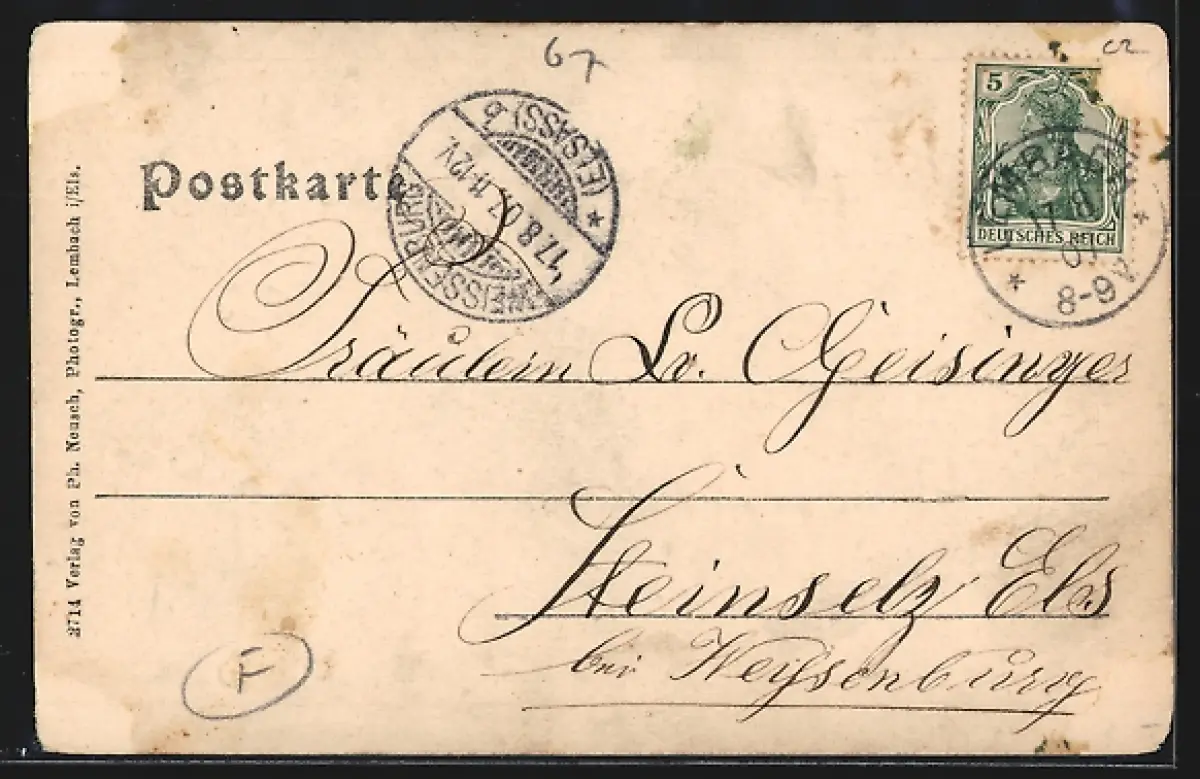 67
Postkarte
WEISSENBURG (ELSASS) b
17.8.07. 11-12V.
5
DEUTSCHES REICH
17 8
07
8-9V
Fräulein Lo. Geisinger
Steinselz Els
bei Weyssenburg
F
2714 Verlag von Ph. Neusch, Photogr., Lembach i/Els.